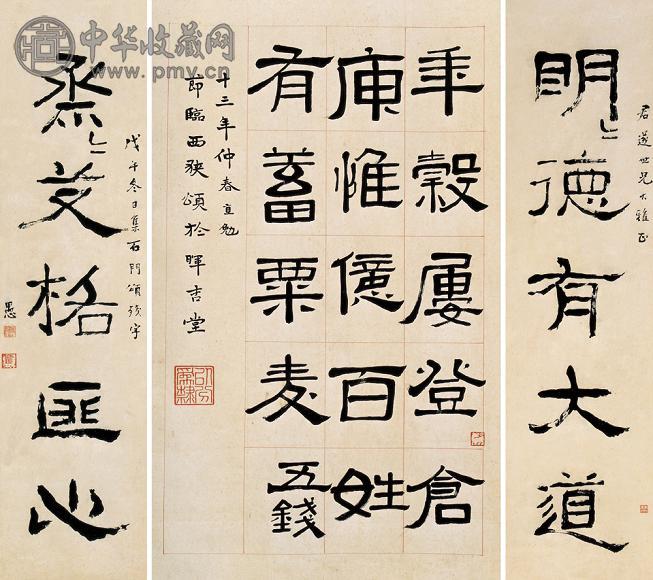 中华收藏网
www.pmv.cn
君遂世兄大雅正
明〻德有大道
年穀屢登倉
庾惟億百姓
有蓄粟麦五錢
十三年仲春
即臨西狹頌於暉吉堂
烝〻艾格匪心
戊午冬日集石門頌殘字
愚